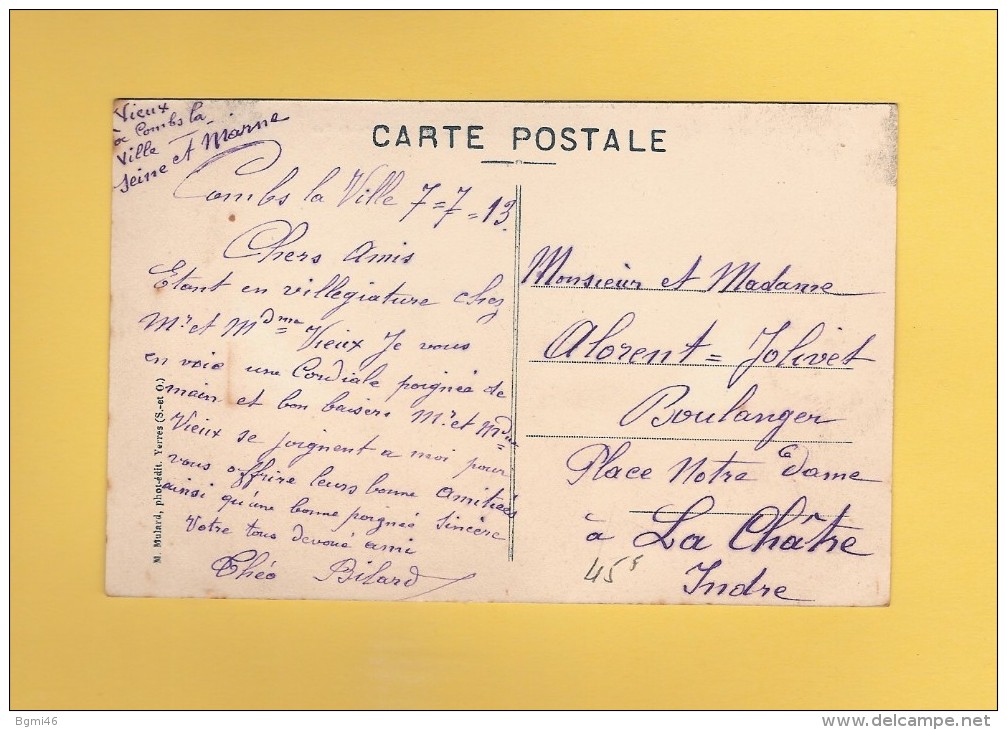 CARTE POSTALE
Vieux
à Combs la
Ville
Seine et Marne
Combs la Ville 7=7=13.
Chers Amis
Etant en villegiature chez
Mr. et Mdme Vieux Je vous
en voie une Cordiale poignée de
main et bon baisers Mr. et Mdme
Vieux se joignent a moi pour
vous offrire leurs bonne amitiées
ainsi qu'une bonne poigneé Sincère
Votre tous devoué ami
Théo Bilard
Monsieur et Madame
Alorent=Jolivet
Boulanger
Place Notre Dame
à La Châtre
Indre
45F
M. Mulard, phot-édit. Yerres (S.-et O.)
Bgmi46
www.delcampe.net